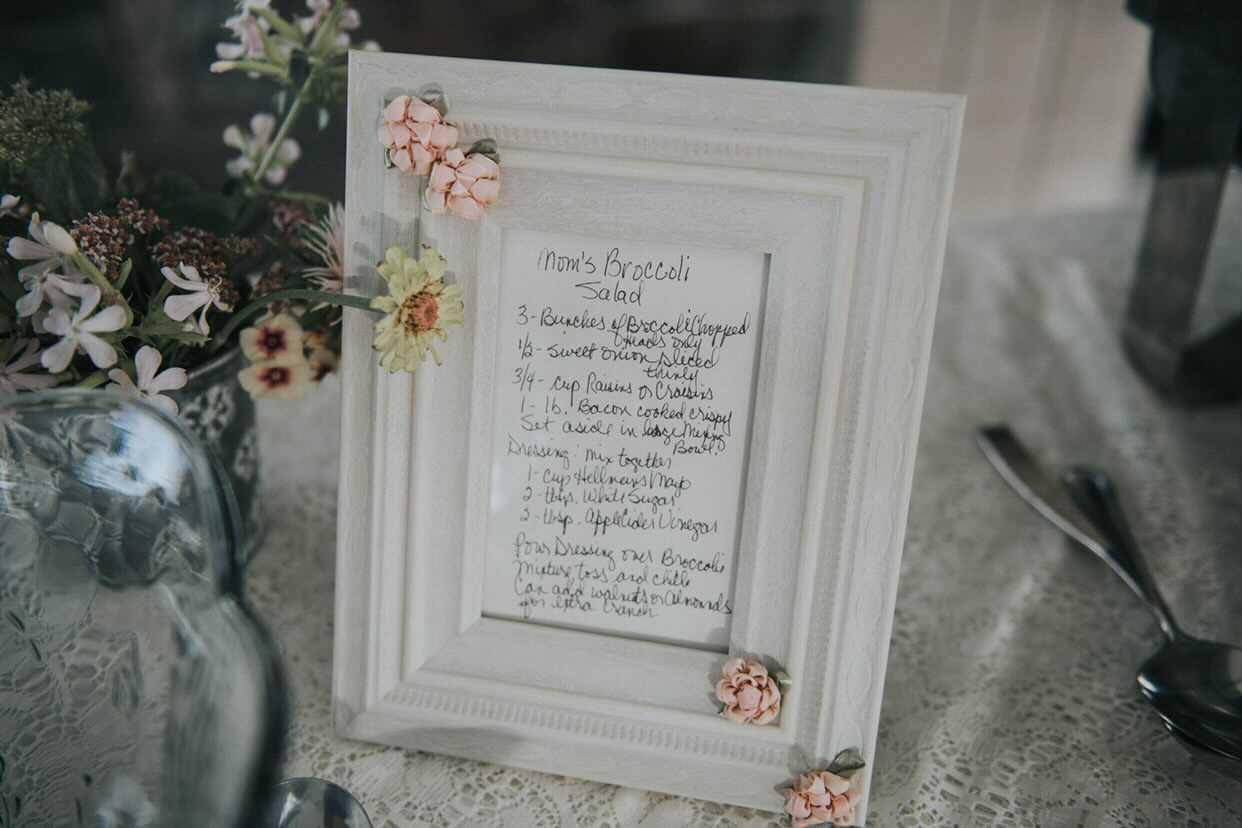 Mom's Broccoli
Salad
3- Bunches of Broccoli Chopped
Heads only
1/2- Sweet onion sliced
thinly
3/4- cup Raisins or Craisins
1- lb. Bacon cooked crispy
Set aside in large Mixing
Bowl.
Dressing: mix together
1- cup Hellman's Mayo
2- tbsp. White Sugar
2- tbsp. Apple Cider Vinegar
Pour Dressing over Broccoli
Mixture, toss and chille
Can add walnuts or Almonds
for extra crunch